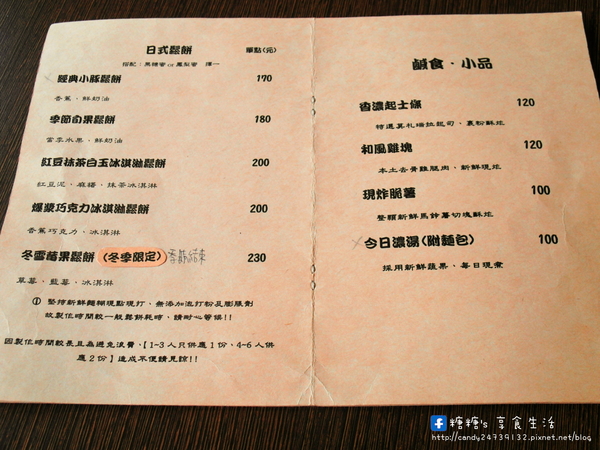 日式鬆餅 單點(元)
搭配：黑糖蜜 or 鳳梨蜜 擇一
經典小豚鬆餅 170
香蕉．鮮奶油
季節旬果鬆餅 180
當季水果．鮮奶油
紅豆抹茶白玉冰淇淋鬆餅 200
紅豆泥．麻糬．抹茶冰淇淋
爆漿巧克力冰淇淋鬆餅 200
香蕉巧克力．冰淇淋
冬雪莓果鬆餅 (冬季限定) 結束 230
草莓．藍莓．冰淇淋
① 堅持新鮮麵糊現點現打．無添加泡打粉及膨脹劑
故製作時間較一般鬆餅耗時，請耐心等候!!
因製作時間較長且為避免浪費，【1-3人只供應1份、4-6人供
應2份】造成不便請見諒!!
鹹食．小品
香濃起士條 120
特選莫札瑞拉起司．裹粉酥炸
和風雞塊 120
本土去骨雞腿肉．新鮮現炸
現炸脆薯 100
整顆新鮮馬鈴薯切塊酥炸
今日濃湯(附麵包) 100
採用新鮮蔬果．每日現煮
糖糖's 享食生活
http://candy24739132.pixnet.net/blog